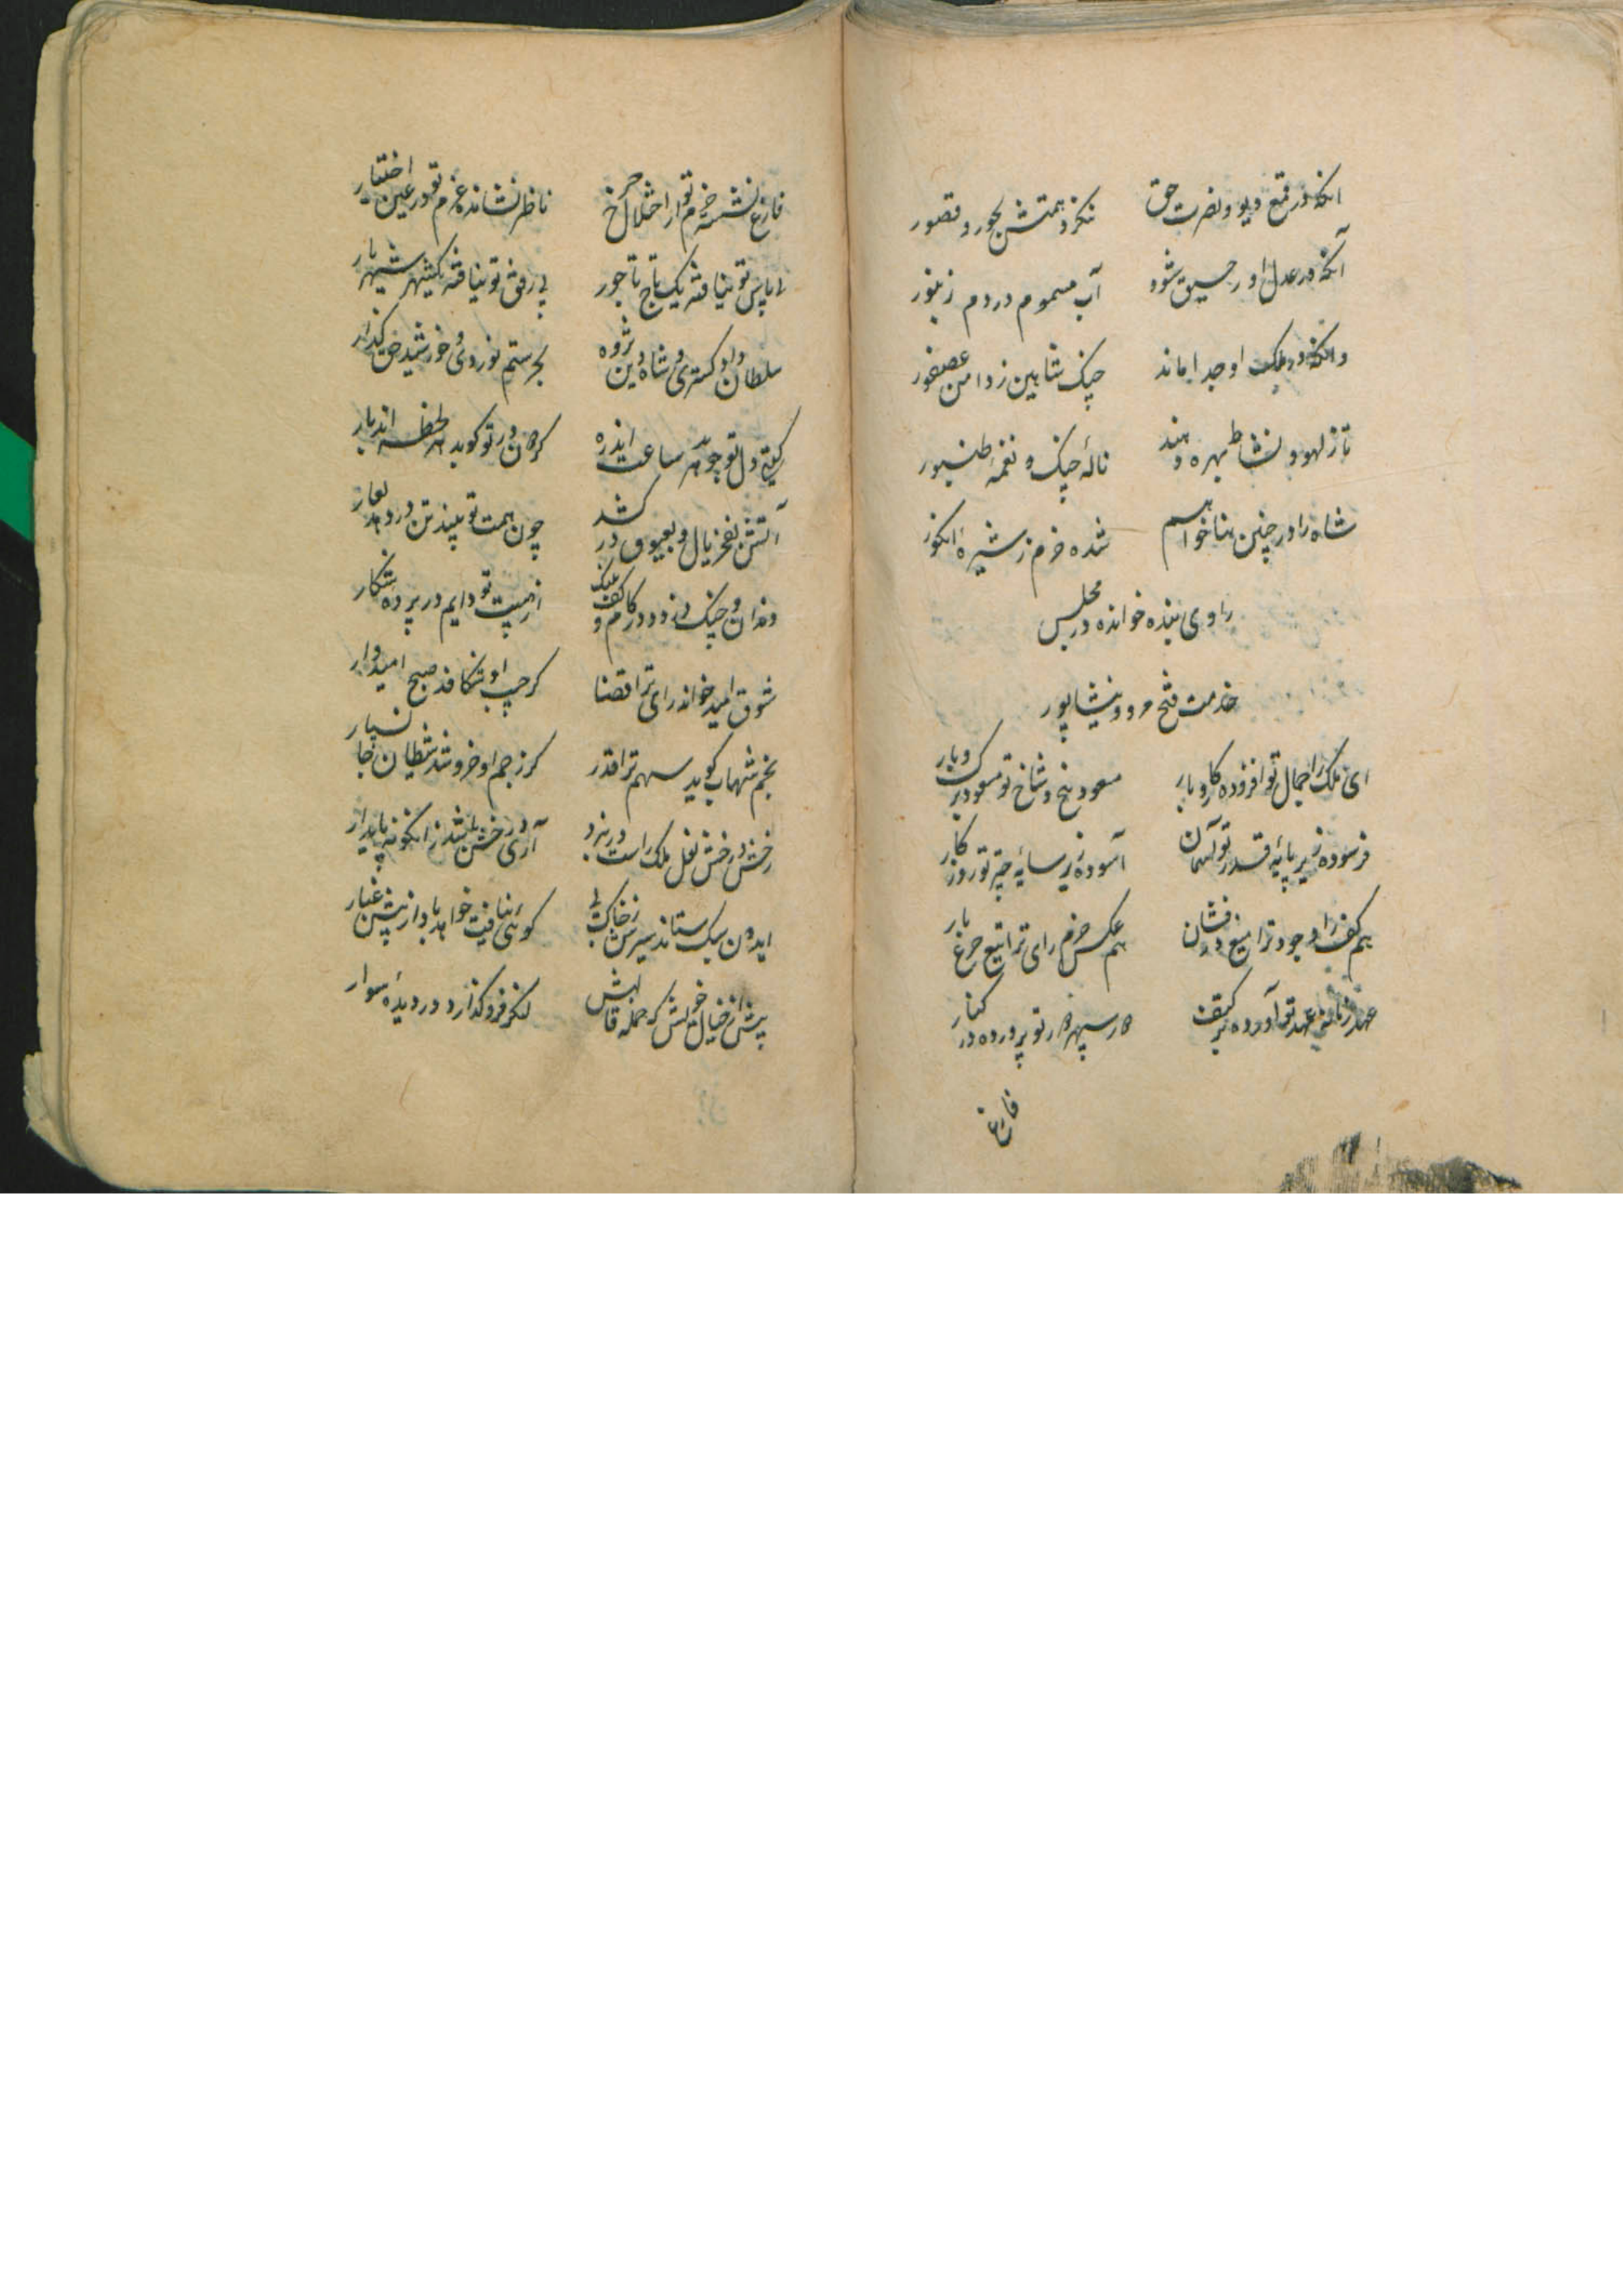 آنکه در قمع دیو و نصرت حق
ننکرد همتش بحور و قصور
آنکه در عدل او رحیق شود
آب مسموم در دم زنبور
وانکه در ملک او جدا ماند
چنک شاهین ز دامن عصفور
تا ز لهو و نشاط بهره دهند
نالهٔ چنک و نغمهٔ طنبور
شاه را در چنین بنا خواهم
شده خرم ز شیرهٔ انکور
راوی بنده خوانده در مجلس
خدمت فتح مرو و نیشاپور
ای ملک را جمال تو افزوده کار و بار
مسعود بیخ و شاخ تو مسعود برک و بار
فرسوده زیر پایهٔ قدر تو آسمان
آسوده زیر سایهٔ چتر تو روزکار
هم کف راد جود ترا میغ درفشان
هم عکس حزم رای ترا تیغ چرخ بار
عهد زمانه عهد تو آورده بر کتف
مهر سپهر مهر تو پرورده در کنار
فارغ
فارغ نشسته حزم تو از اختلال چرخ
ناظر نشانده عزم تو در عین اختیار
بی پاس تو نیافته یک تاج تاجور
بی رفق تو نیافته یک شهر شهریار
سلطان داد کستری و شاه دین پژوه
بحر ستم نوردی و خورشید حق کذار
کیتی دل تو جوید هر ساعت اندره
کردون در تو کوبد هر لحظه اندبار
آتش بفخر یال بعیوق در کشد
چون همت تو بیند تن در دهد بعار
دندان و چنک دزدد در کام و کف پلنک
از هیبت تو دایم در پرده شکار
شوق امید خواند رای ترا قضا
کر جیب او شکافد صبح امیدوار
نجم شهاب کوید سهم ترا قدر
کز رجم او خروشد شیطان جانسپار
رخش درخش نعل ملک راست در نبرد
آری درخش باشد زانکونه پایدار
ایدون سبک ستاند سیرش ز خاک پی
کوئی نیافت خواهد باد از پیش غبار
پیش از خیال خویش که جمله قالبش
لنکر فرو کذارد در دیدهٔ سوار